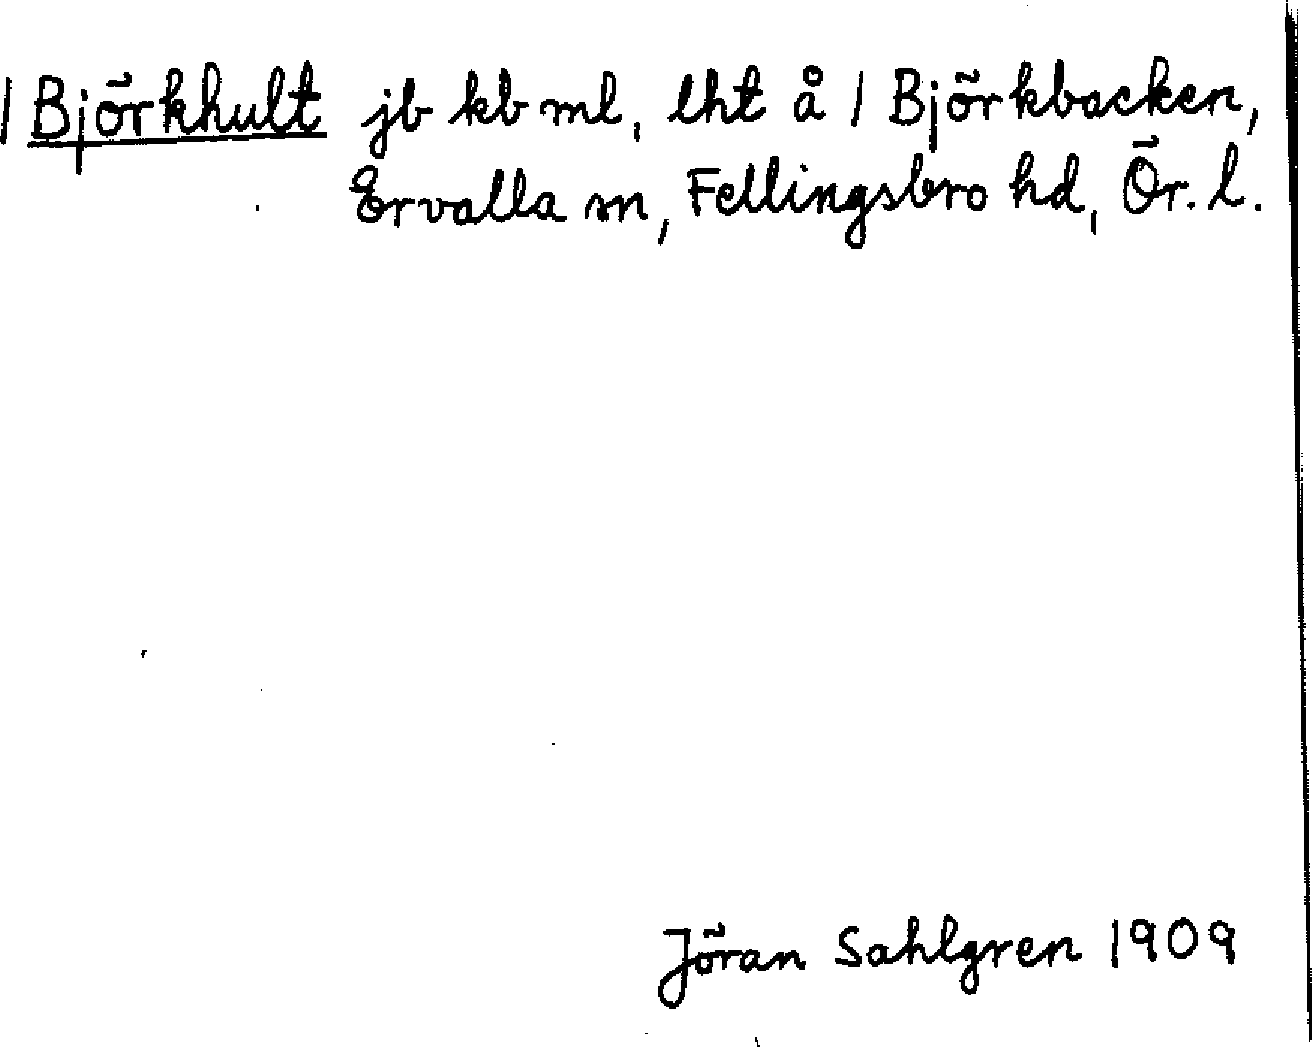 / Björkhult jb kb ml, lht å / Björkbacken,
Ervalla sn, Fellingsbro hd, Ör. l.
Jöran Sahlgren 1909